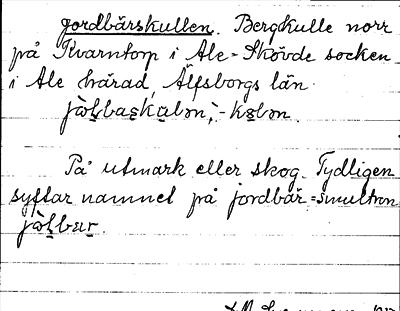 Jordbärskullen. Bergkulle norr
på Kvarntorp i Ale-Skövde socken
i Ale härad, Älfsborgs län.
På utmark eller skog. Tydligen
syftar namnet på jordbär = smultron